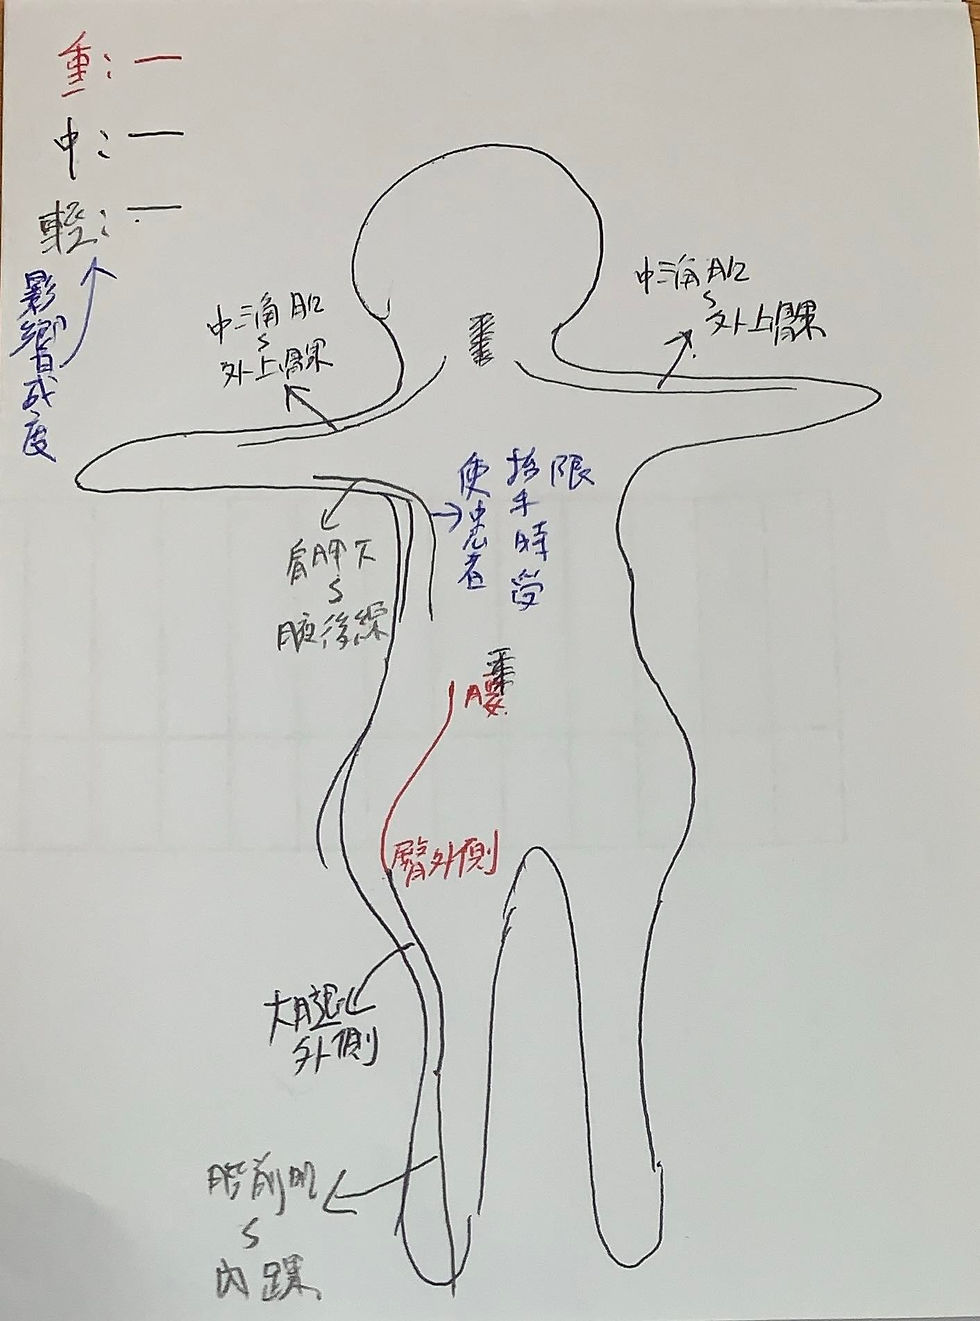 重：一
中：一
輕：一
影響自成度
中三角肌
S
外上髁
中三角肌
S
外上髁
使患者
抬手時受
限
肩胛下
S
腋後線
腰
臀外側
大腿
外側
脛前肌
S
內踝